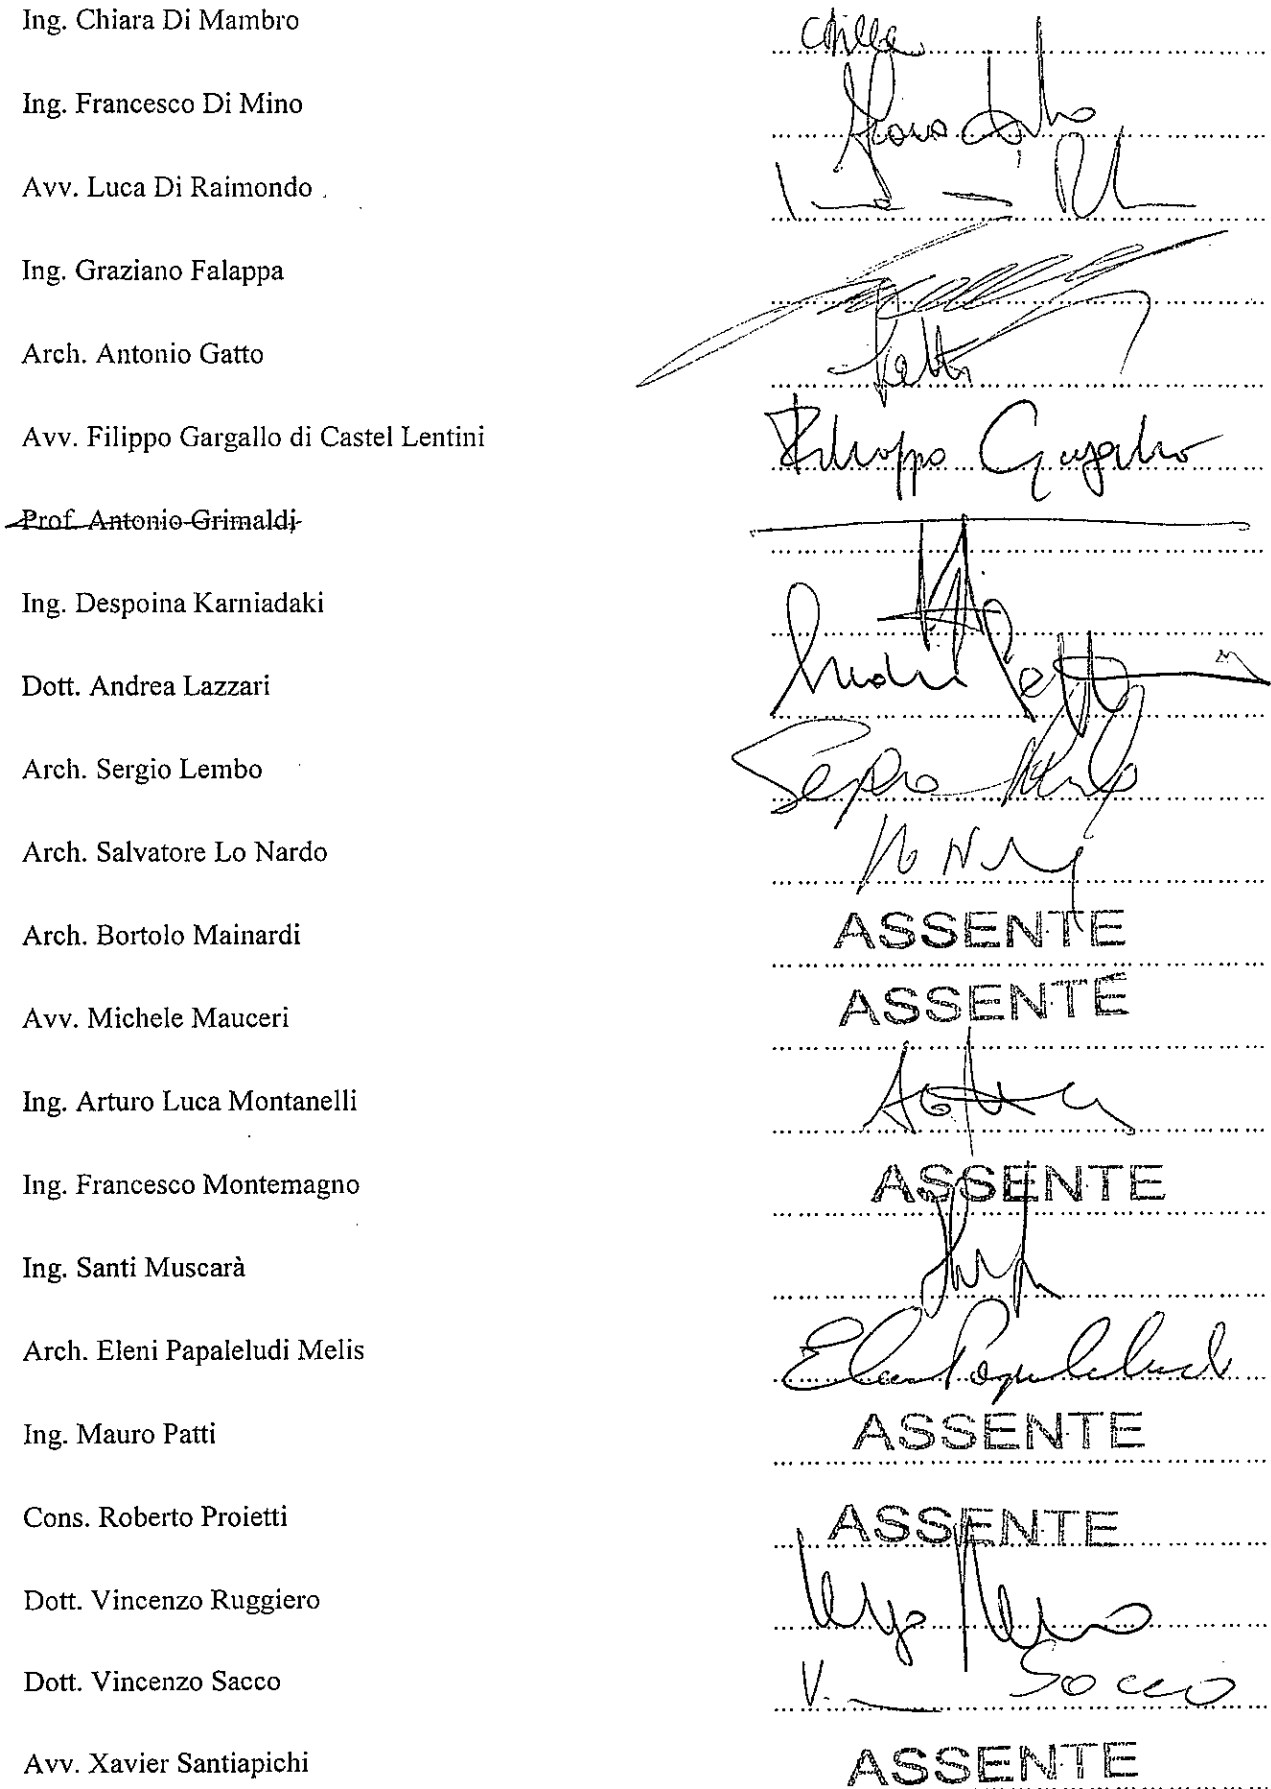 Ing. Chiara Di Mambro
Ing. Francesco Di Mino
Avv. Luca Di Raimondo
Ing. Graziano Falappa
Arch. Antonio Gatto
Avv. Filippo Gargallo di Castel Lentini Filippo Gargallo
Prof. Antonio Grimaldi
Ing. Despoina Karniadaki
Dott. Andrea Lazzari
Arch. Sergio Lembo Sergio Lembo
Arch. Salvatore Lo Nardo
Arch. Bortolo Mainardi ASSENTE
Avv. Michele Mauceri ASSENTE
Ing. Arturo Luca Montanelli
Ing. Francesco Montemagno ASSENTE
Ing. Santi Muscarà
Arch. Eleni Papaleludi Melis
Ing. Mauro Patti ASSENTE
Cons. Roberto Proietti ASSENTE
Dott. Vincenzo Ruggiero
Dott. Vincenzo Sacco V. Sacco
Avv. Xavier Santiapichi ASSENTE